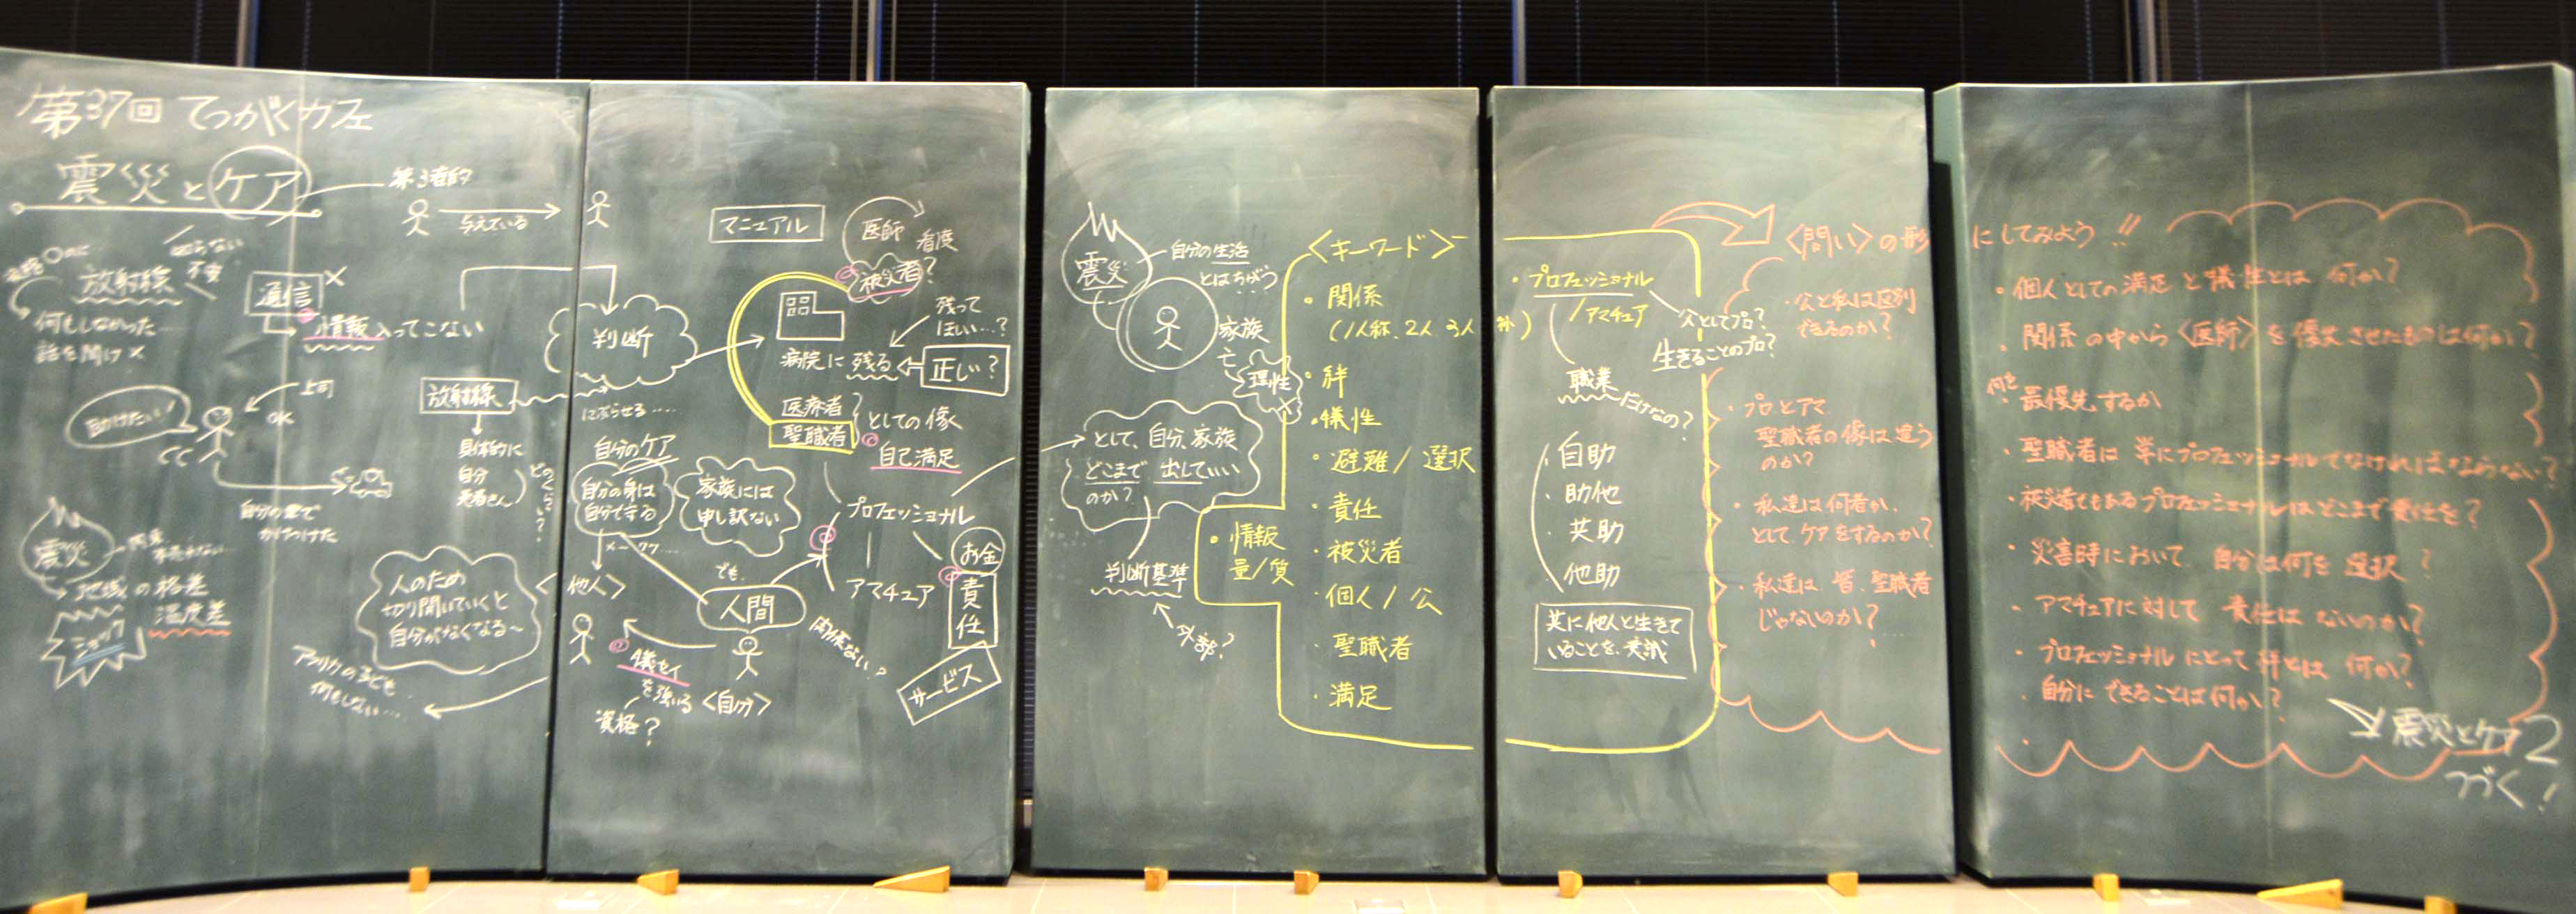 第37回 てつがくカフェ
震災とケア
第3者的
与えている
知らない
放射線 不安
何もしなかった
話を聞け ×
通信 ×
情報入ってこない
助けたい!
上司
OK
自分の車で
かけつけた
放射線
具体的に
自分
患者さん
どのくらい?
震災
地域の格差
温度差
ショック
人のため
切り開いていくと
自分がなくなる〜
アフリカの子ども
何もしない…
判断
にぶらせる….
マニュアル
医師
看護
被災者?
病院に残る
残って
ほしい…?
正しい?
医療者
聖職者
としての像
自己満足
自分のケア
自分の身は
自分で守る
家族には
申し訳ない
〈他人〉
でも、
人間
犠セイ
を強いる
〈自分〉
資格?
プロフェッショナル
アマチュア
関係ない?
お金
責任
サービス
震災
自分の生活
とはちがう
家族
理性
として、自分、家族
どこまで 出していい
のか?
判断基準
外部?
〈キーワード〉
・関係
(1人称、2人 3人称)
・絆
・犠性
・避難/選択
・責任
・情報
量/質
・被災者
・個人/公
・聖職者
・満足
・プロフェッショナル
/アマチュア
父としてプロ?
生きることのプロ?
職業
だけなの?
・自助
・助他
・共助
・他助
共に他人と生きて
いることを、意識
〈問い〉の形にしてみよう!!
・公と私は区別
できるのか?
・プロとアマ
聖職者の像は違う
のか?
・私達は何者か、
として ケアをするのか?
・私達は、皆、聖職者
じゃないのか?
・個人としての満足と犠性とは何か?
・関係の中から〈医師〉を優先させたものは何か?
何を最優先するか
・聖職者は単にプロフェッショナルでなければならない?
・被災者でもあるプロフェッショナルはどこまで責任を?
・災害時において 自分は何を選択?
・アマチュアに対して 責任はないのか?
・プロフェッショナルにとって絆とは何か?
・自分にできることは何か?
震災とケア2
つづく!